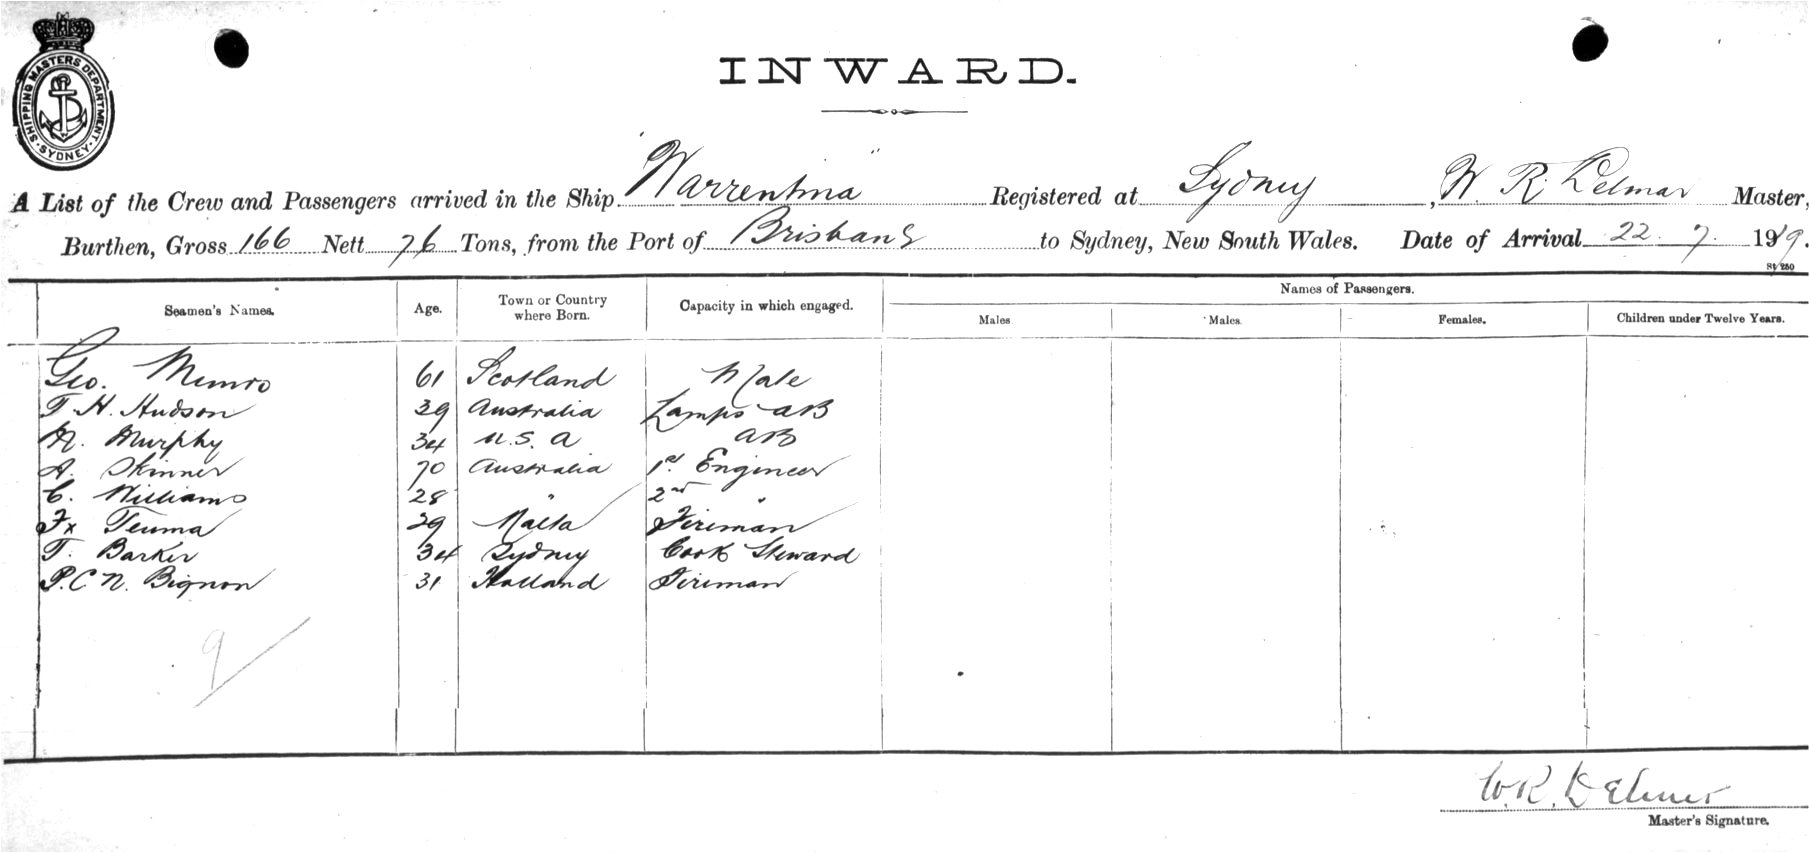 SHIPPING MASTERS DEPARTMENT
SYDNEY
INWARD.
A List of the Crew and Passengers arrived in the Ship "Warrentina" Registered at Sydney, W. R. Delmar Master,
Burthen, Gross 166 Nett 76 Tons, from the Port of Brisbane to Sydney, New South Wales. Date of Arrival 22. 7. 1919.
St 250
Seamen's Names. Age. Town or Country where Born. Capacity in which engaged. Names of Passengers.
Males Males. Females. Children under Twelve Years.
Geo. Munro 61 Scotland Mate
T. H. Hudson 39 Australia Lamps AB
M. Murphy 34 U.S.A AB
A. Skinner 70 Australia 1st. Engineer
C. Williams 28 " 2nd "
Fx Teuma 29 Malta Fireman
T. Barker 34 Sydney Cook Steward
P. C N. Bignon 31 Holland Fireman
9
W. R. Delmar
Master's Signature.